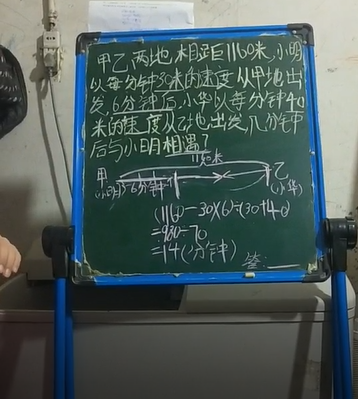 甲乙两地相距1160米,小明
以每分钟30米的速度从甲地出
发,6分钟后,小华以每分钟40
米的速度从乙地出发,几分钟
后与小明相遇?
1160米
甲 乙
(小明) 6分钟 (小华)
(1160-30×6)÷(30+40)
=980÷70
=14(分钟) 答: